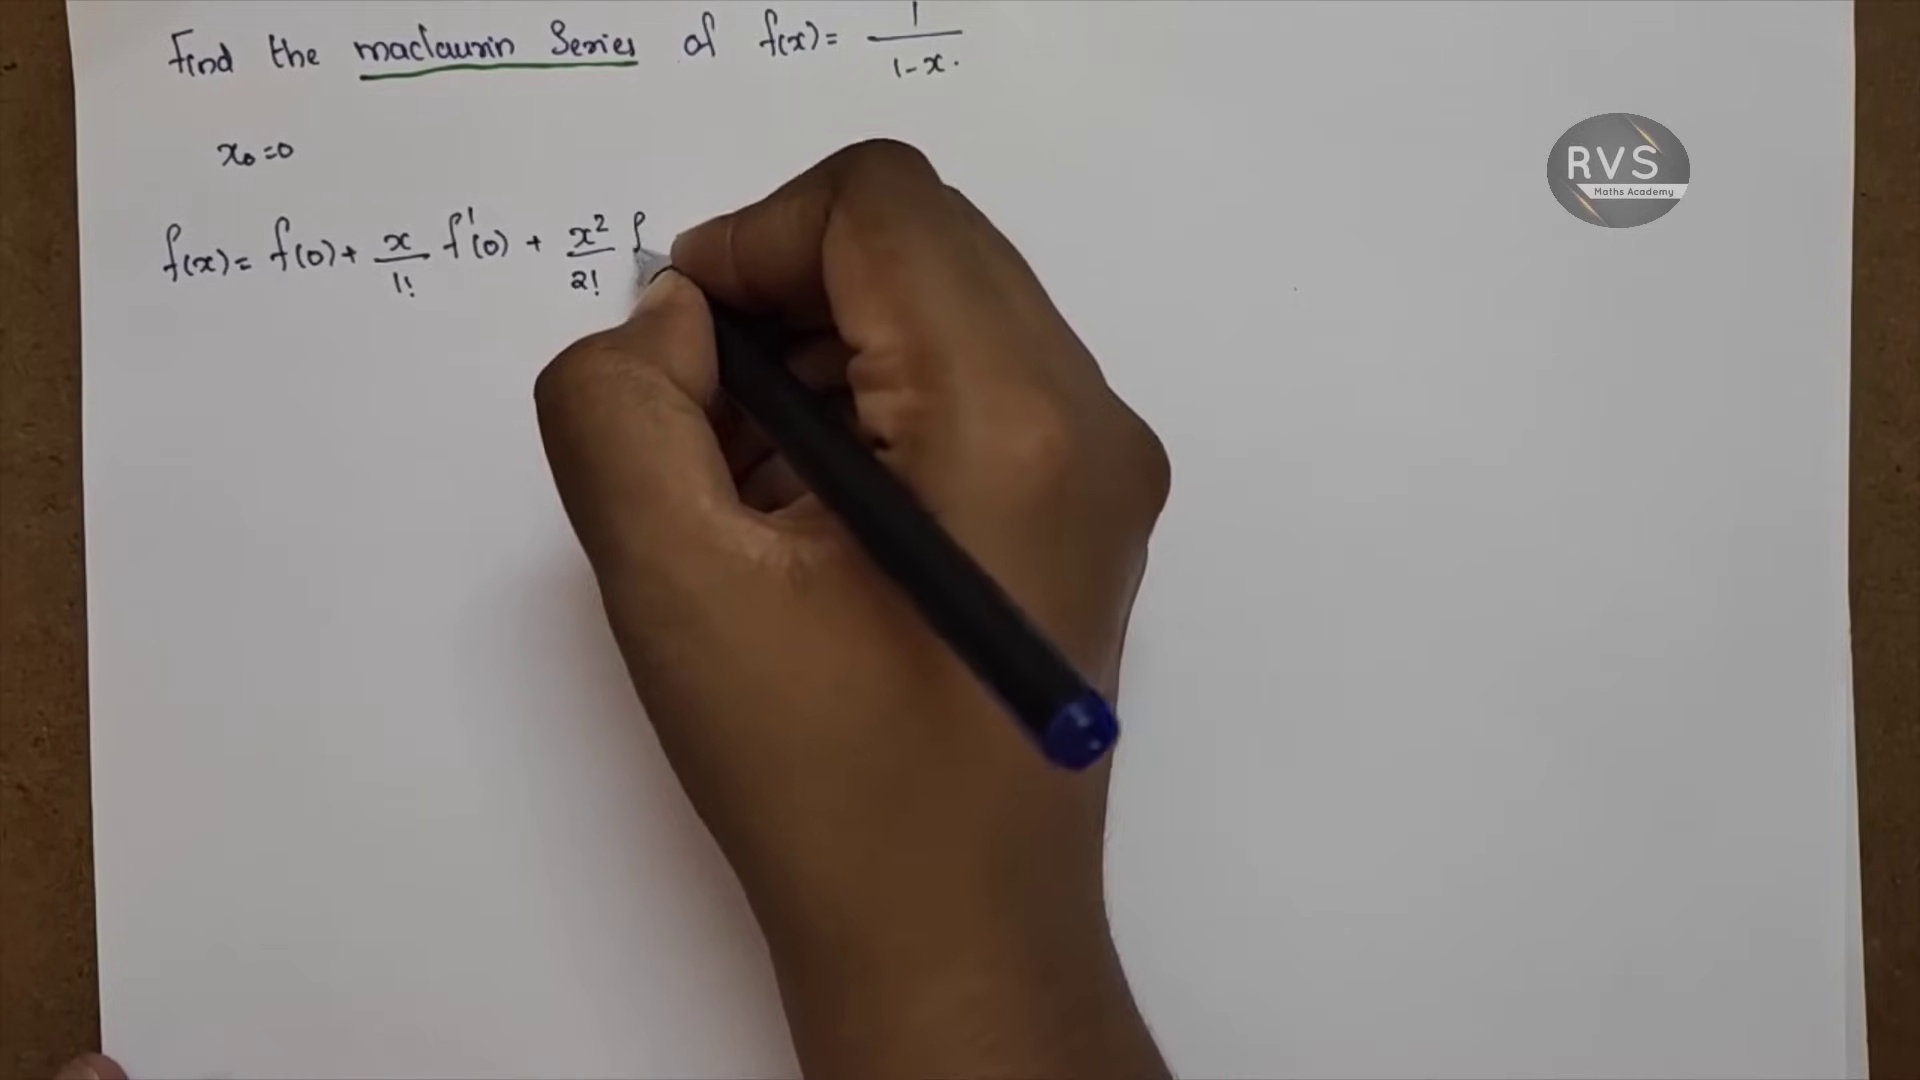 Find the maclaurin Series of f(x) = 1/1-x.
x₀ = 0
f(x) = f(0) + x/1! f'(0) + x²/2! f
RVS
Maths Academy